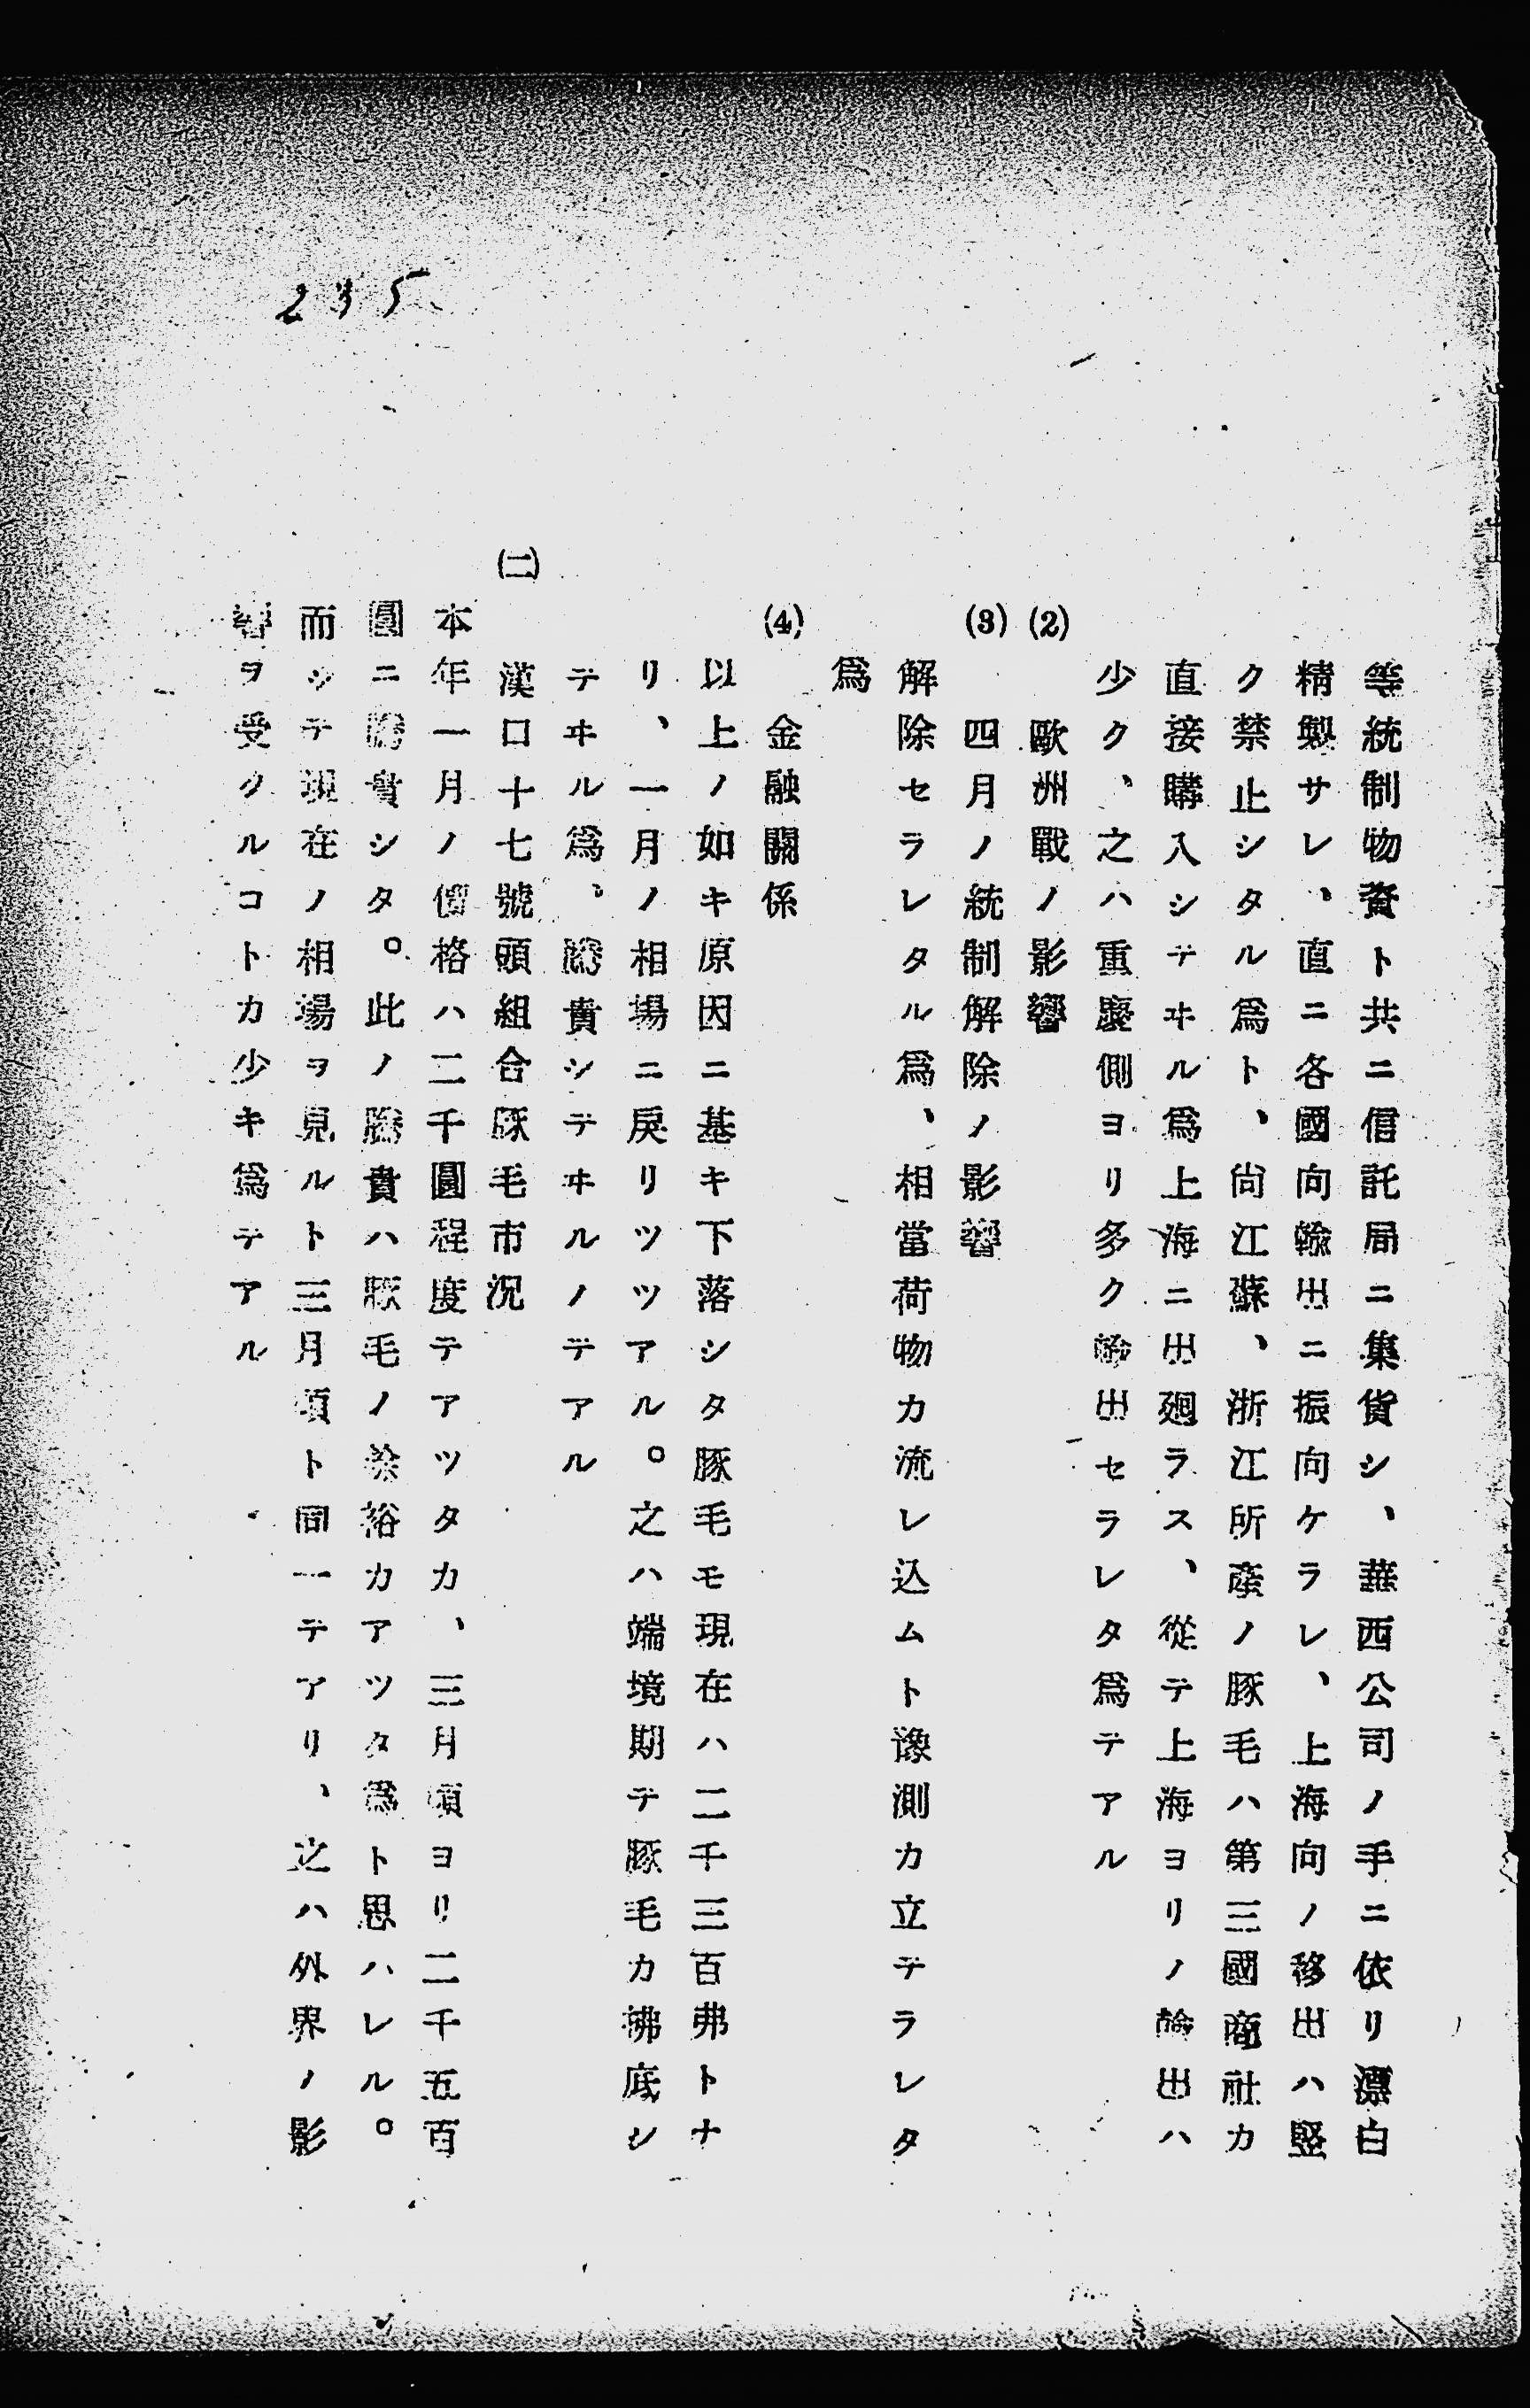 235
等統制物資ト共ニ信託局ニ集貨シ、華西公司ノ手ニ依リ漂白
精製サレ、直ニ各國向輸出ニ振向ケラレ、上海向ノ移出ハ堅
ク禁止シタル爲ト、尙江蘇、浙江所產ノ豚毛ハ第三國商社カ
直接購入シテヰル爲上海ニ出廻ラス、從テ上海ヨリノ輸出ハ
少ク、之ハ重慶側ヨリ多ク輸出セラレタ爲テアル
(2) 歐洲戰ノ影響
(3) 四月ノ統制解除ノ影響
解除セラレタル爲、相當荷物カ流レ込ムト豫測カ立テラレタ
爲
(4) 金融關係
以上ノ如キ原因ニ基キ下落シタ豚毛モ現在ハ二千三百弗トナ
リ、一月ノ相場ニ戾リツツアル。之ハ端境期テ豚毛カ拂底シ
テヰル爲、騰貴シテヰルノテアル
(二) 漢口十七號頭組合豚毛市況
本年一月ノ價格ハ二千圓程度テアツタカ、三月頃ヨリ二千五百
圓ニ騰貴シタ。此ノ騰貴ハ豚毛ノ餘裕カアツタ爲ト思ハレル。
而シテ現在ノ相場ヲ見ルト三月頃ト同一テアリ、之ハ外界ノ影
響ヲ受クルコトカ少キ爲テアル